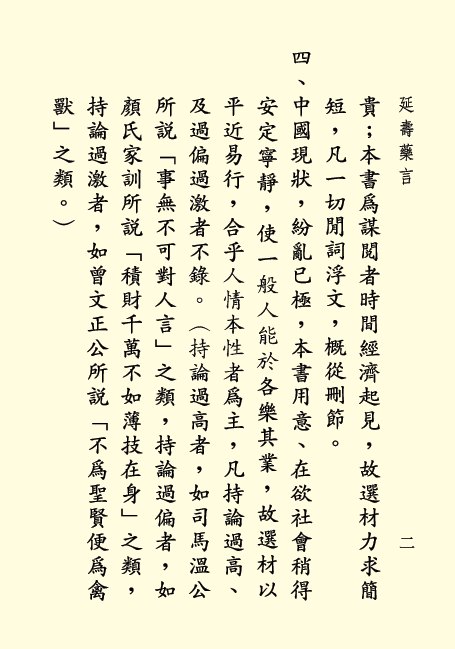 延壽藥言
二
貴；本書爲謀閱者時間經濟起見，故選材力求簡
短，凡一切閒詞浮文，概從刪節。
四、中國現狀，紛亂已極，本書用意、在欲社會稍得
安定寧靜，使一般人能於各樂其業，故選材以
平近易行，合乎人情本性者爲主，凡持論過高、
及過偏過激者不錄。（持論過高者，如司馬溫公
所説「事無不可對人言」之類，持論過偏者，如
顏氏家訓所説「積財千萬不如薄技在身」之類，
持論過激者，如曾文正公所説「不爲聖賢便爲禽
獸」之類。）